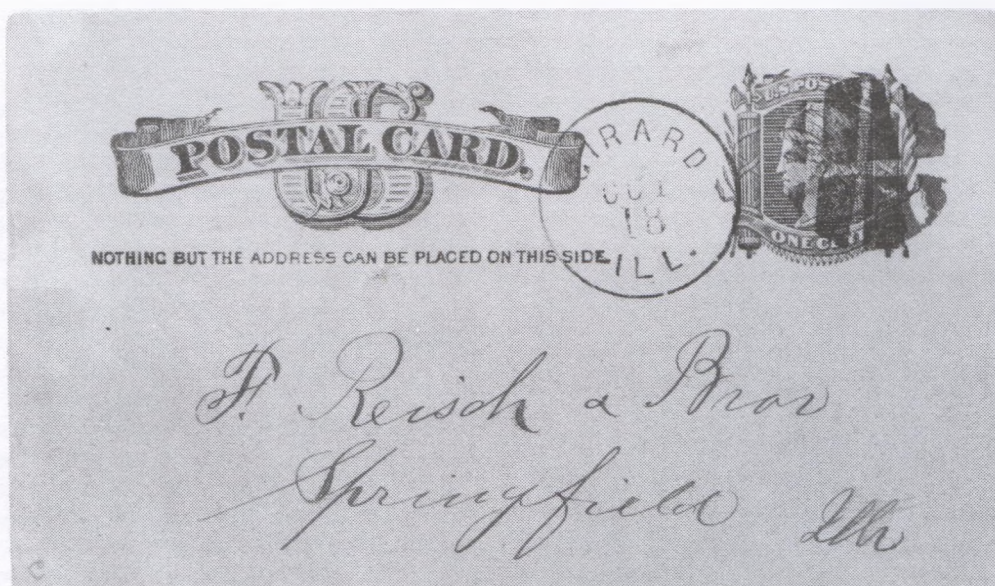 US
POSTAL CARD.
NOTHING BUT THE ADDRESS CAN BE PLACED ON THIS SIDE.
IRARD
OCT
18
ILL.
U.S. POS
ONE CE T
F. Reisch & Bros
Springfield Ills
C